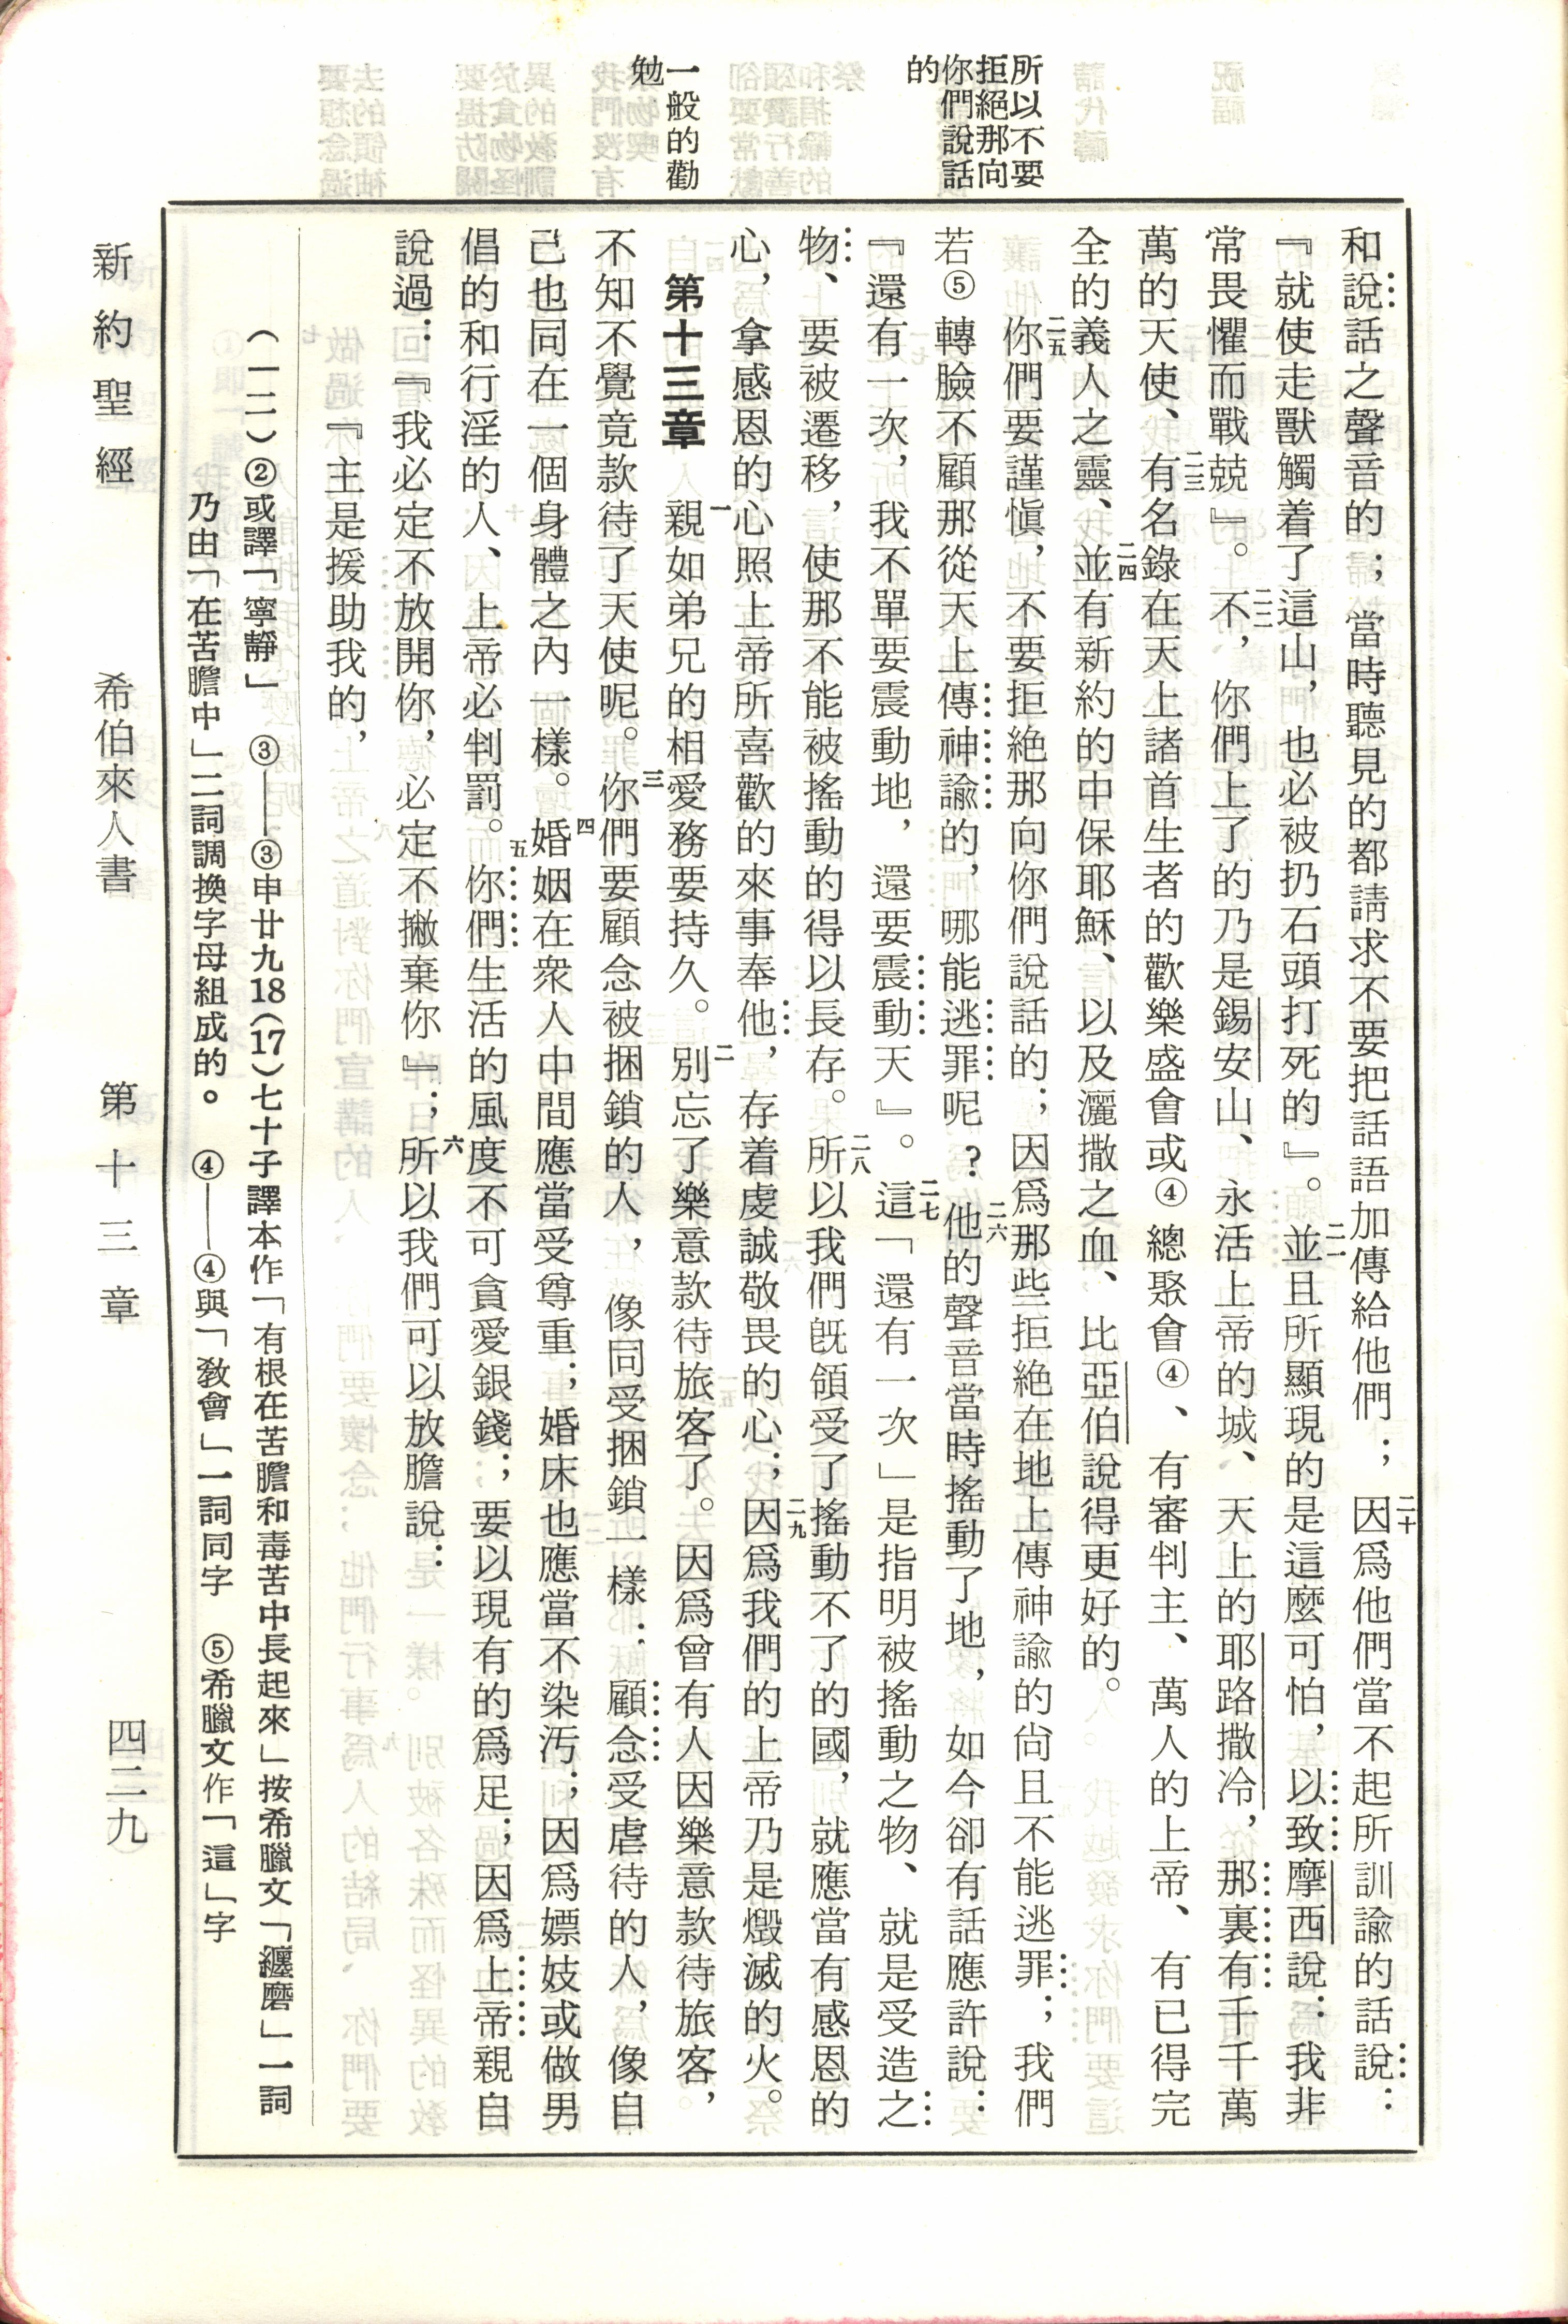 所以不要
拒絕那向
你們說話
的
一般的勸
勉
和說話之聲音的；當時聽見的都請求不要把話語加傳給他們；二十因爲他們當不起所訓諭的話說：
『就使走獸觸着了這山，也必被扔石頭打死的』。二一並且所顯現的是這麼可怕，以致摩西說：我非
常畏懼而戰兢』。二二不，你們上了的乃是錫安山、永活上帝的城、天上的耶路撒冷，那裏有千千萬
萬的天使、二三有名錄在天上諸首生者的歡樂盛會或④總聚會④、有審判主、萬人的上帝、有已得完
全的義人之靈、二四並有新約的中保耶穌、以及灑撒之血、比亞伯說得更好的。
二五你們要謹愼，不要拒絕那向你們說話的；因爲那些拒絕在地上傳神諭的尙且不能逃罪；我們
若⑤轉臉不顧那從天上傳神諭的，哪能逃罪呢?二六他的聲音當時搖動了地，如今卻有話應許說：
『還有一次，我不單要震動地，還要震動天』。二七這「還有一次」是指明被搖動之物、就是受造之
物、要被遷移，使那不能被搖動的得以長存。二八所以我們旣領受了搖動不了的國，就應當有感恩的
心，拿感恩的心照上帝所喜歡的來事奉他，存着虔誠敬畏的心；二九因爲我們的上帝乃是燬滅的火。
第十三章　一親如弟兄的相愛務要持久。二別忘了樂意款待旅客了。因爲曾有人因樂意款待旅客，
不知不覺竟款待了天使呢。三你們要顧念被捆鎖的人，像同受捆鎖一樣：顧念受虐待的人，像自
己也同在一個身體之內一樣。四婚姻在衆人中間應當受尊重；婚床也應當不染汚；因爲嫖妓或做男
倡的和行淫的人、上帝必判罰。五你們生活的風度不可貪愛銀錢；要以現有的爲足；因爲上帝親自
說過：『我必定不放開你，必定不撇棄你』；六所以我們可以放膽說：
『主是援助我的，
（一二）②或譯「寧靜」　③——③申廿九18（17）七十子譯本作「有根在苦膽和毒苦中長起來」按希臘文「纏磨」一詞
乃由「在苦膽中」二詞調換字母組成的。　④——④與「敎會」一詞同字　⑤希臘文作「這」字
新約聖經　希伯來人書　第十三章　四二九